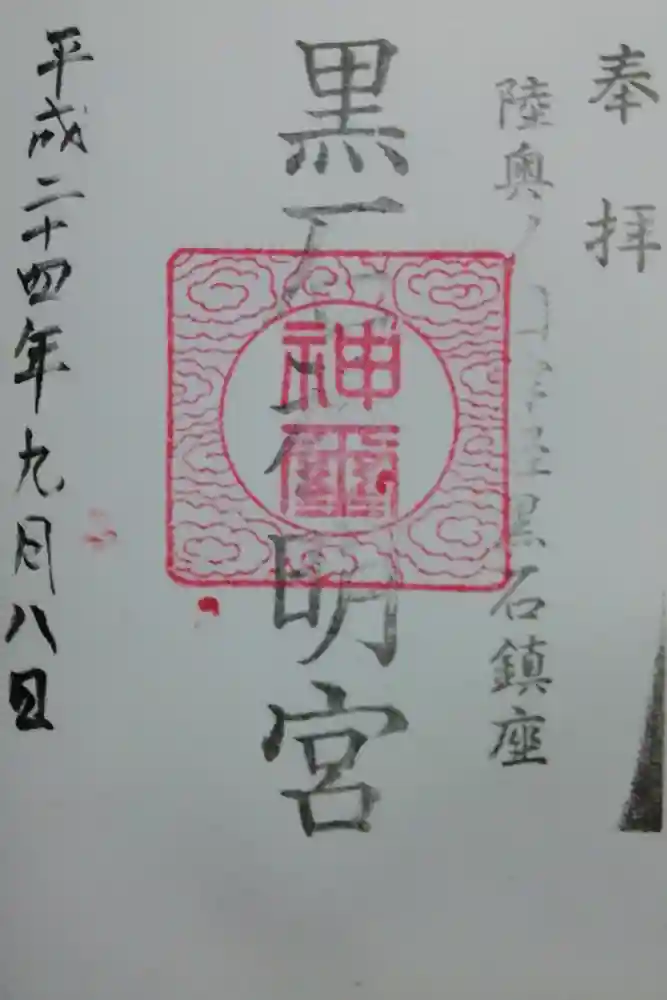 奉拝
陸奥ノ 黒石鎮座
黒石神明宮
神璽
平成二十四年九月八日